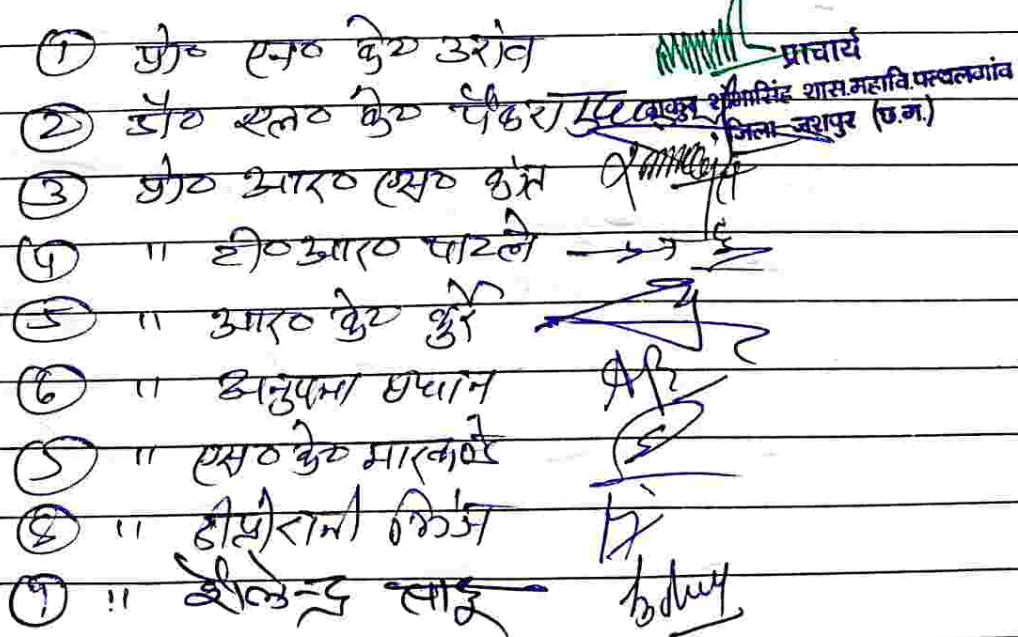 ① प्रो० एन० के० उरांव
प्राचार्य
ठाकुर शोभासिंह शास.महावि.पत्थलगांव
जिला-जशपुर (छ.ग.)
② डॉ० एल० के० पैंकरा
③ प्रो० आर० एस० कंत
④ " टी० आर० पाटले
⑤ " आर० के० कुर्रे
⑥ " अनुपमा प्रधान
⑦ " एस० के० मारकण्डे
⑧ " दीप्तीरानी मिंज
⑨ " शैलेन्द्र साहू